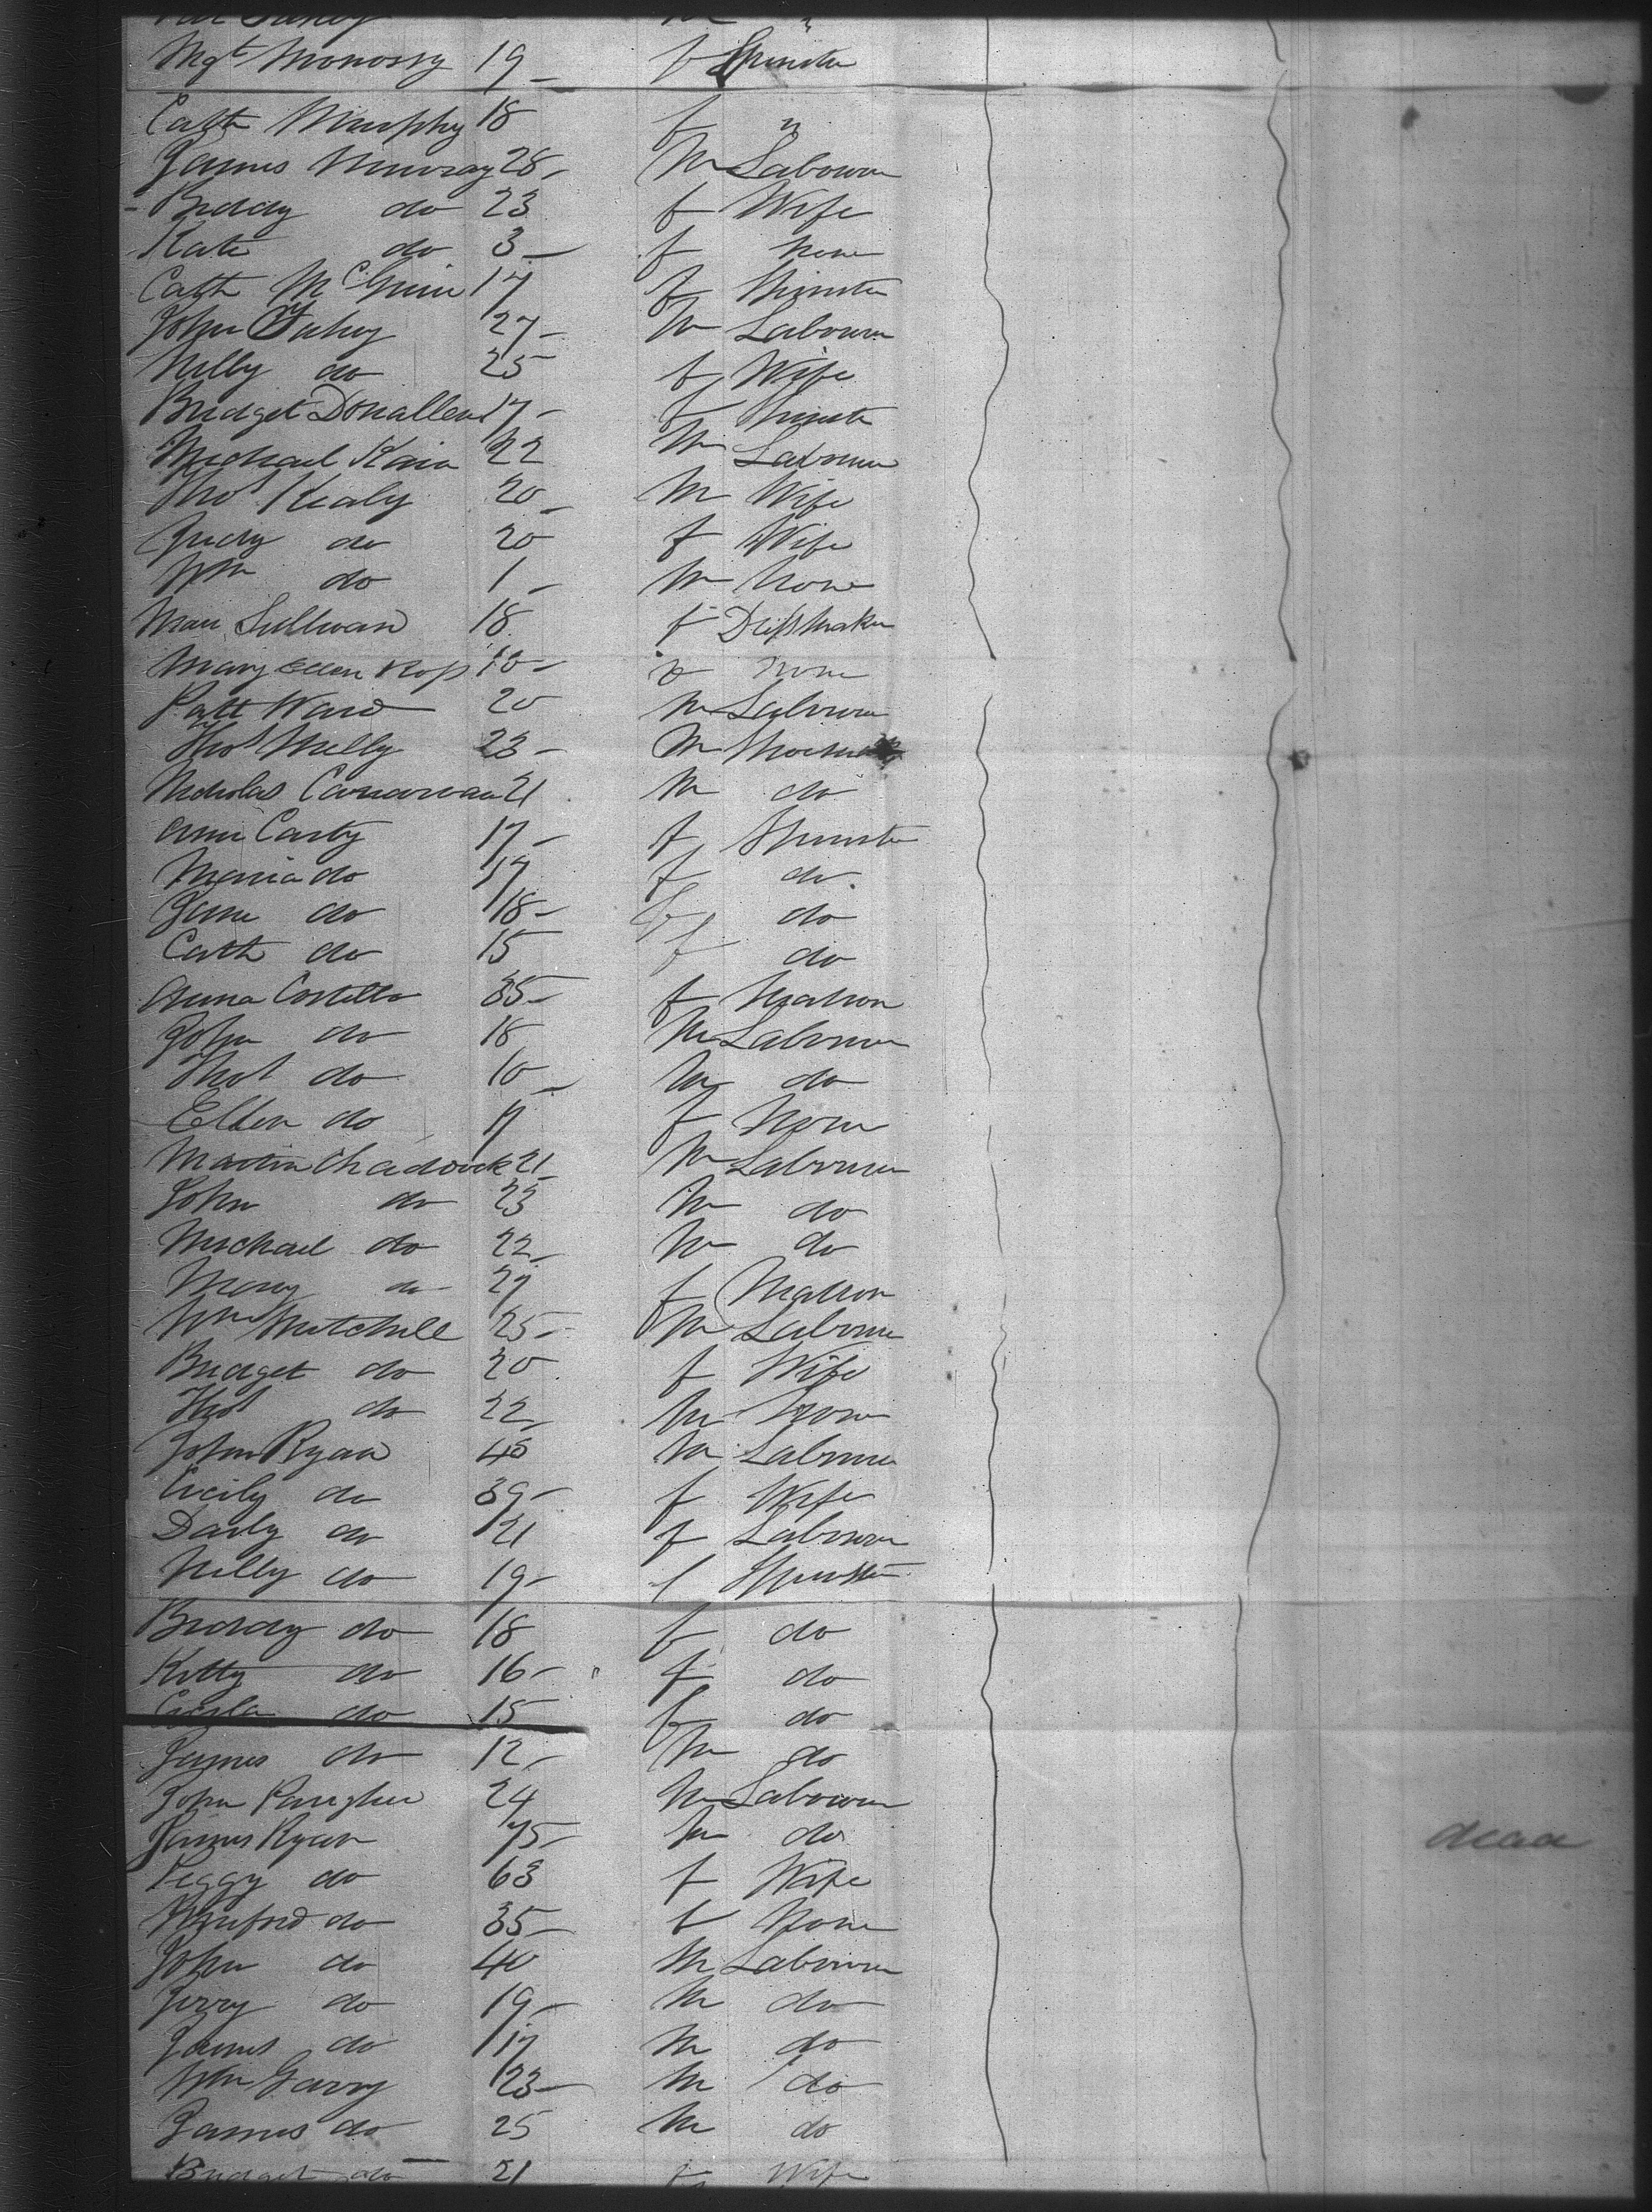 Mgt Monossy 19 f Spinster
Cath Murphy 18 f "
James Murray 28 M Labourer
Biddy do 23 f Wife
Kate do 3 f None
Cath McGuin 17 f Spinster
John Fahey 27 M Labourer
Nelly do 25 f Wife
Bridget Donallen 17 f Spinster
Michael Kain 22 M Labourer
Thos Kealy 20 M Wife
Judy do 20 f Wife
Wm do 1 M None
Mary Sullivan 18 f Dressmaker
Mary Ellen Ross 10 f None
Patt Ward 20 M Labourer
Thos Melly 23 M Shoemaker
Nicholas Canarvan 21 M do
Ann Carty 17 f Spinster
Maria do 17 f do
Jane do 18 f do
Cath do 15 f do
Anna Costello 35 f Matron
John do 18 M Labourer
Thos do 10 M do
Ellen do 7 f None
Martin Chadwick 21 M Labourer
John do 23 M do
Michael do 22 M do
Mary do 27 f Matron
Wm Mitchell 25 M Labourer
Bridget do 20 f Wife
Thos do 22 M None
John Ryan 45 M Labourer
Cicily do 39 f Wife
Darly do 21 f Labourer
Nelly do 19 f Spinster
Biddy do 18 f do
Kitty do 16 f do
do 15 f do
James do 12 M do
John 24 M Labourer
James Ryan 75 M do dead
Peggy do 63 f Wife
Winifred do 35 f None
John do 40 M Labourer
Jerry do 19 M do
James do 17 M do
Wm Garry 23 M do
James do 25 M do
Bridget do 21 f Wife